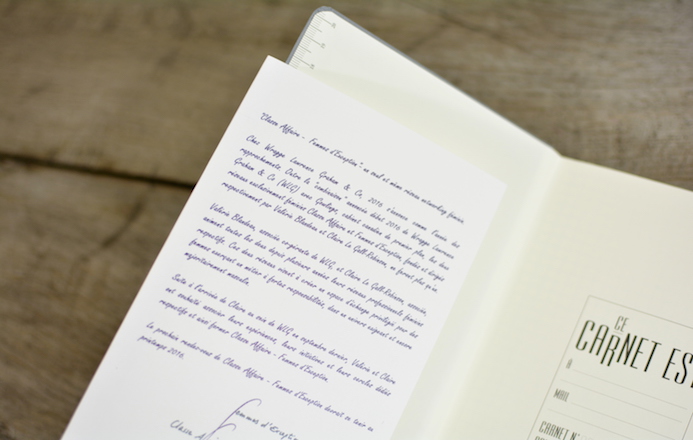 "Classe Affaire - Femmes d'Exception", un seul et même réseau networking féminin
Chez Wragge Lawrence Graham & Co, 2016 s'annonce comme l'année des
rapprochements. Outre la "combinaison" annoncée début 2016 de Wragge Lawrence
Graham & Co (WLG) avec Gowlings, cabinet canadien de premier plan, les deux
réseaux exclusivement féminins Classe Affaire et Femmes d'Exception, fondés et dirigés
respectivement par Valérie Blandeau et Claire Le Gall-Robinson, ne feront plus qu'un.
Valérie Blandeau, associée co-gérante de WLG, et Claire Le Gall-Robinson, associée,
animent toutes les deux depuis plusieurs années leurs réseaux professionnels féminins
respectifs. Ces deux réseaux visent à créer un espace d'échange privilégié pour des
femmes exerçant un métier à fortes responsabilités, dans un univers exigeant et encore
majoritairement masculin.
Suite à l'arrivée de Claire au sein de WLG en septembre dernier, Valérie et Claire
ont souhaité associer leurs expériences, leurs initiatives et leurs cercles dédiés
respectifs et ainsi former Classe Affaire - Femmes d'Exception.
Le prochain rendez-vous de Classe Affaire - Femmes d'Exception devrait se tenir au
printemps 2016.
Femmes d'Exception
Classe
CE
CARNET EST
À
MAIL
CARNET N°